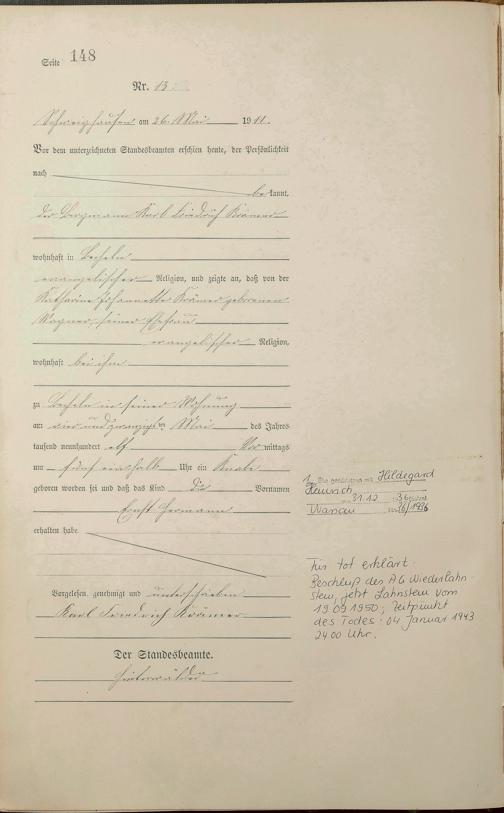 Seite 148
Nr. 13
Schweighausen am 26. Mai 1911.
Vor dem unterzeichneten Standesbeamten erschien heute, der Persönlichkeit
nach
be kannt,
der Bergmann Karl Friedrich Krämer
wohnhaft in Becheln
evangelischer Religion, und zeigte an, daß von der
Katharine Johannette Krämer geborenen
Wagner, seiner Ehefrau
evangelischer Religion,
wohnhaft bei ihm
zu Becheln in seiner Wohnung
am vier und zwanzigsten Mai des Jahres
tausend neunhundert elf Vor mittags
um fünf ein halb Uhr ein Knabe
geboren worden sei und daß das Kind die Vornamen
Ernst Hermann
erhalten habe.
Vorgelesen, genehmigt und unterschrieben
Karl Friedrich Krämer
Der Standesbeamte.
1. mit Hildegard
31.12
36/1936
Für tot erklärt.
Beschluß des AG Niederlahn-
stein, jetzt Lahnstein vom
19.09.1950, Zeitpunkt
des Todes: 04. Januar 1943
24.00 Uhr.